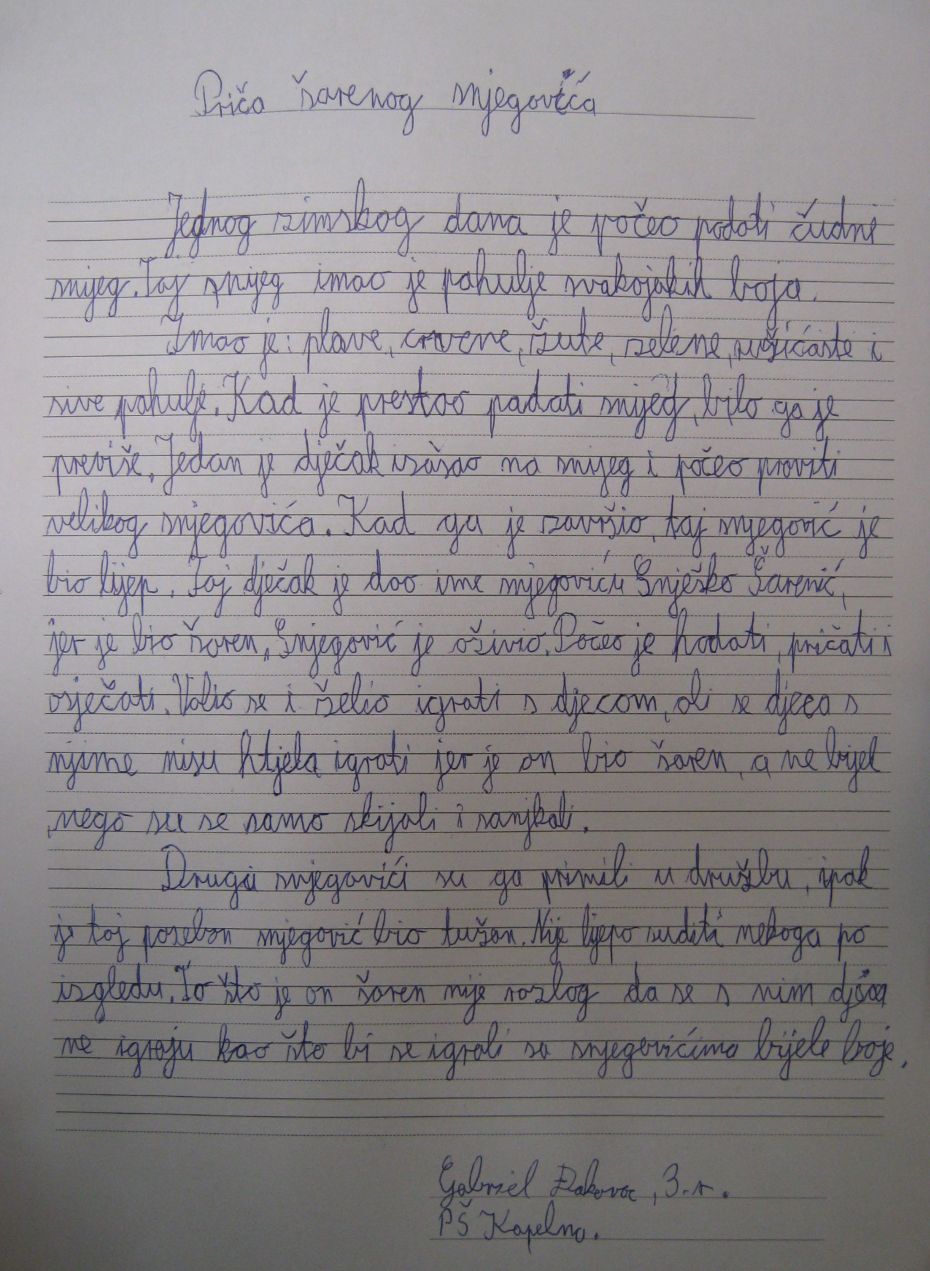 Priča šarenog snjegovića
Jednog zimskog dana je počeo padati čudni
snijeg. Taj snijeg imao je pahulje svakojakih boja.
Imao je: plave, crvene, žute, zelene, ružičaste i
sive pahulje. Kad je prestao padati snijeg, bilo ga je
previše. Jedan je dječak izašao na snijeg i počeo praviti
velikog snjegovića. Kad ga je završio, taj snjegović je
bio lijep. Taj dječak je dao ime snjegoviću Snješko Šarenić,
jer je bio šaren. Snjegović je oživio. Počeo je hodati, pričati i
osječati. Volio se i želio igrati s djecom, ali se djeca s
njime nisu htjela igrati jer je on bio šaren, a ne bijel
, nego su se samo skijali i sanjkali.
Drugi snjegovići su ga primili u družbu, ipak
je taj poseban snjegović bio tužan. Nije lijepo suditi nekoga po
izgledu. To što je on šaren nije razlog da se s nim djeca
ne igraju kao što bi se igrali sa snjegovićima bijele boje.
Gabriel Đakovac, 3. r.
PŠ Kapelna.